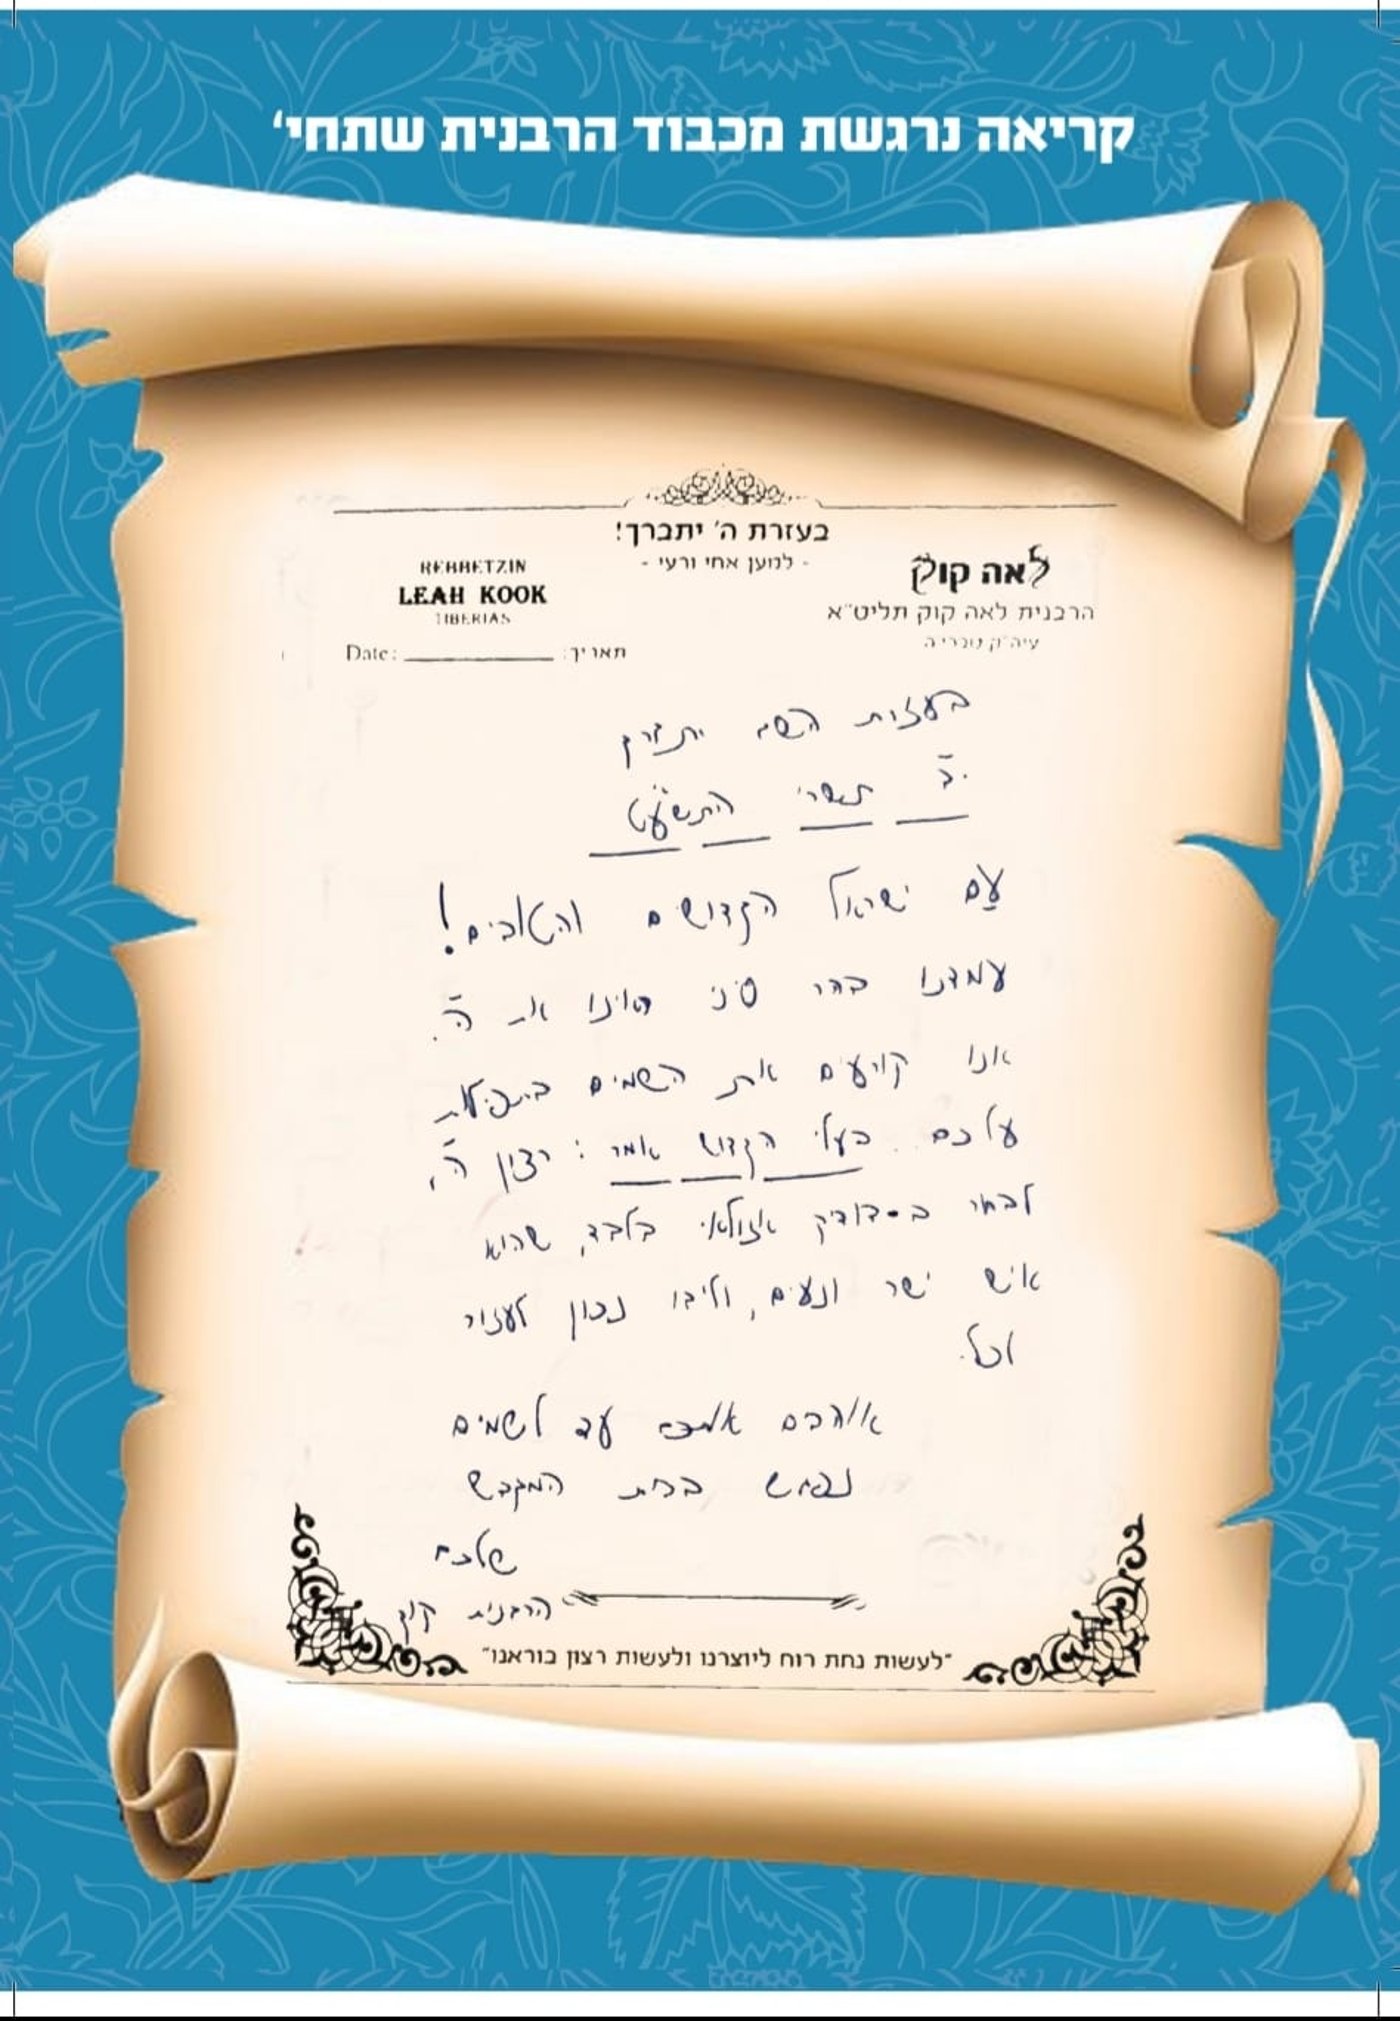 קריאה נרגשת מכבוד הרבנית שתחי'
בעזרת ה' יתברך!
- למען אחי ורעי -
לאה קוק
הרבנית לאה קוק תליט"א
עיה"ק טבריה
REBBETZIN
LEAH KOOK
TIBERIAS
Date: ________ תאריך:
בעזרת השם יתברך
תשרי התשע"ט
עם ישראל הקדושים והטובים!
עמדנו בהר סיני ראינו את ה'.
אנו קורעים את השמים בתפילות
עלכם.. בעלי הקדוש אמר: רצון ה',
לבחור ב-דודיק אזולאי בלבד, שהוא
איש ישר ונעים, וליבו נכון לעזור
לכל.
אוהבים אתכם עד לשמים
נפגש בבית המקדש
שלכם
הרבנית קוק
"לעשות נחת רוח ליוצרנו ולעשות רצון בוראנו"